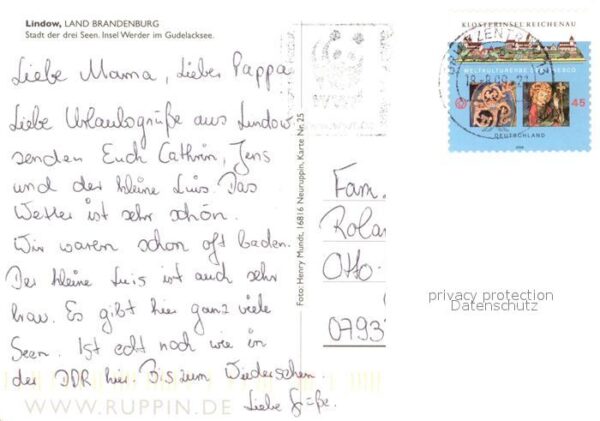 Lindow, LAND BRANDENBURG
Stadt der drei Seen. Insel Werder im Gudelacksee.
Liebe Mama, Lieber Pappa
Liebe Urlaubsgrüße aus Lindow
senden Euch Cathrin, Jens
und der kleine Luis. Das
Wetter ist sehr schön.
Wir waren schon oft baden.
Der kleine Luis ist auch sehr
brav. Es gibt hier ganz viele
Seen. Ist echt noch wie in
der DDR hier. Bis zum Wiedersehen.
Liebe Grüße.
WWW.RUPPIN.DE
Foto: Henry Mundt, 16816 Neuruppin, Karte Nr. 25
KLOSTERINSEL REICHENAU
WELTKULTURERBE DER UNESCO
45
DEUTSCHLAND
Fam.
Rola
Otto-
0793
privacy protection
Datenschutz